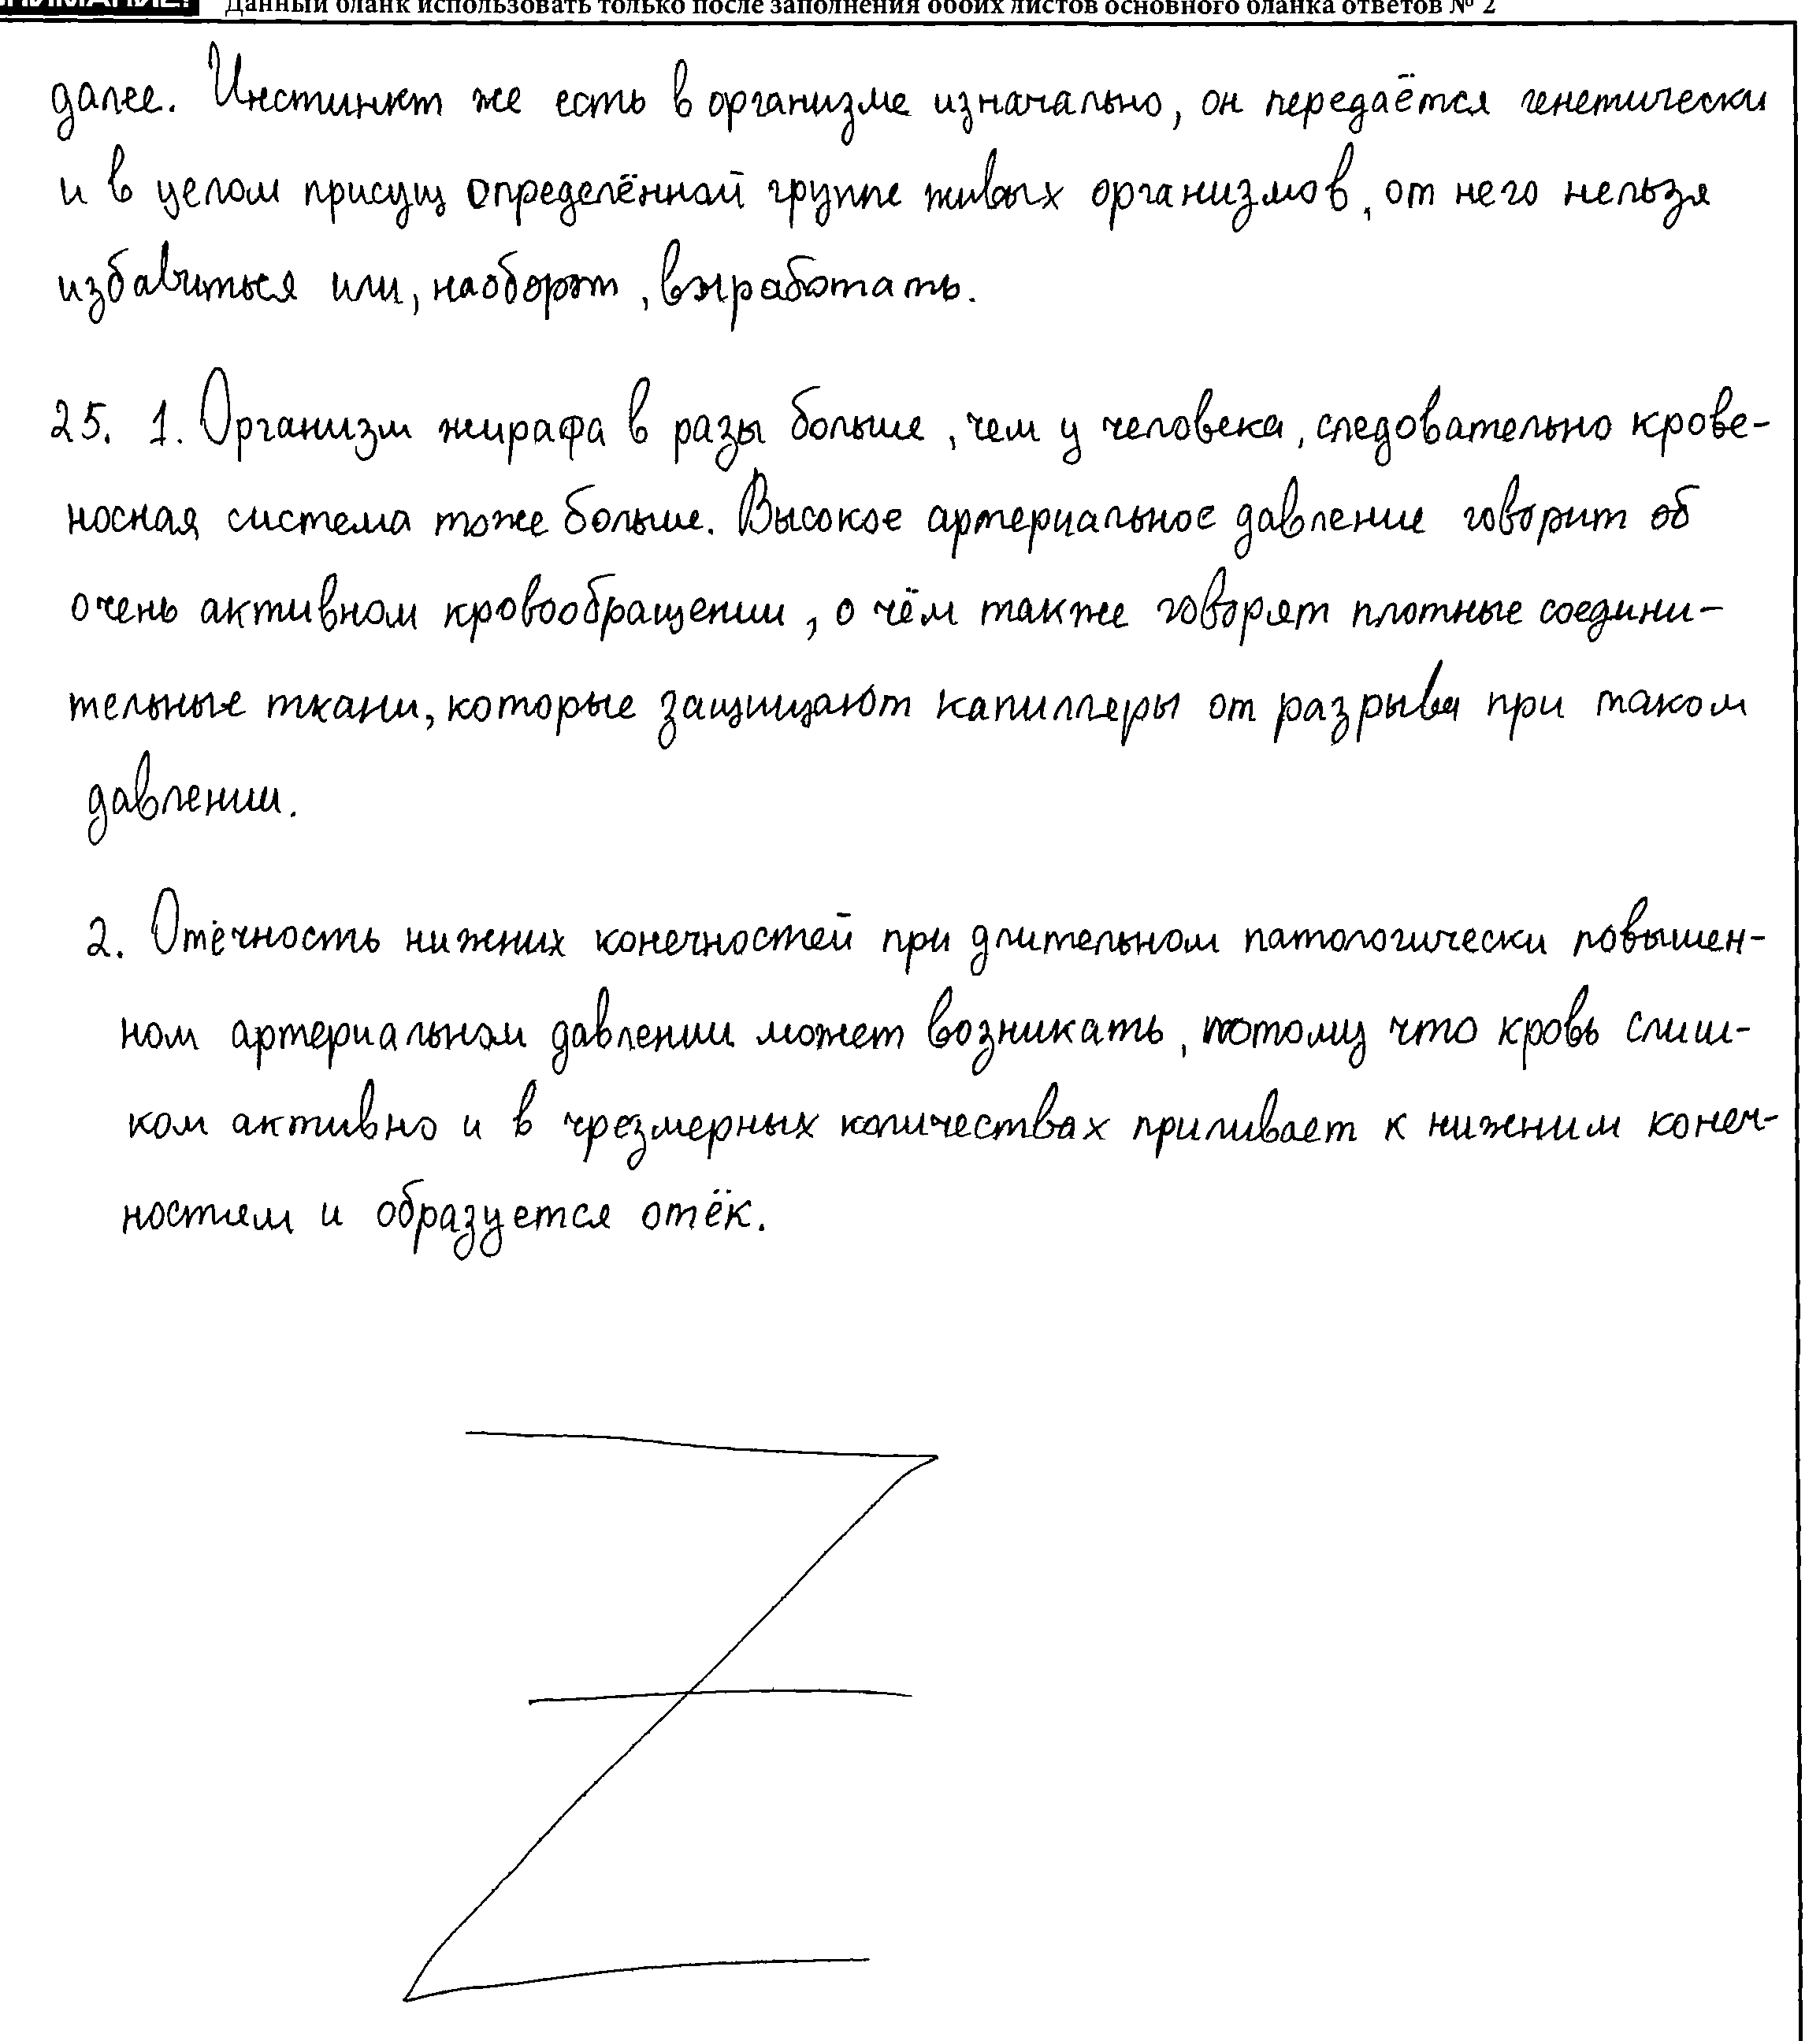 Данный бланк использовать только после заполнения обоих листов основного бланка ответов № 2
далее. Инстинкт же есть в организме изначально, он передаётся генетически
и в целом присущ определённой группе живых организмов, от него нельзя
избавиться или, наоборот, выработать.
25. 1. Организм жирафа в разы больше, чем у человека, следовательно крове-
носная система тоже больше. Высокое артериальное давление говорит об
очень активном кровообращении, о чём также говорят плотные соедини-
тельные ткани, которые защищают капилляры от разрыва при таком
давлении.
2. Отёчность нижних конечностей при длительном патологически повышен-
ном артериальном давлении может возникать, потому что кровь слиш-
ком активно и в чрезмерных количествах приливает к нижним конеч-
ностям и образуется отёк.